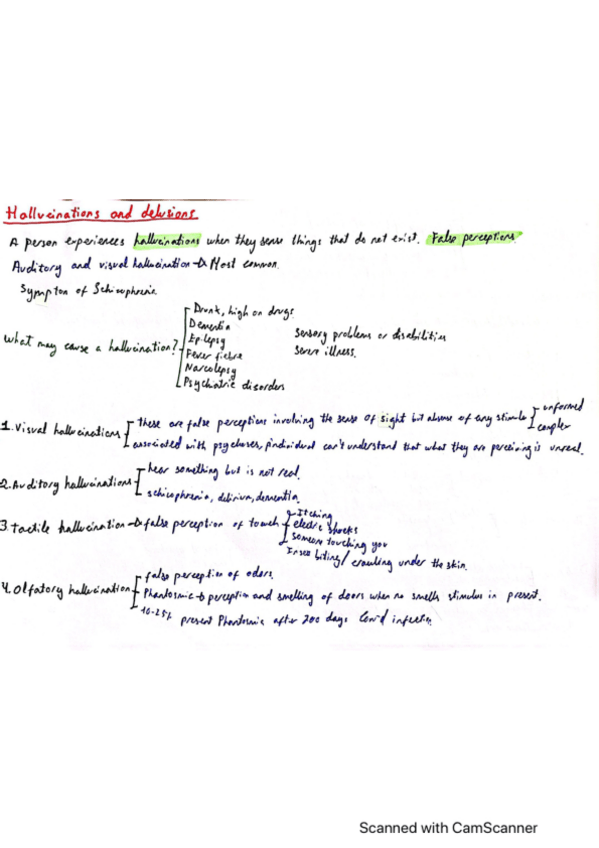 Hallucinations and delusions
A person experiences hallucinations when they sense things that do not exist. False perceptions.
Auditory and visual hallucination → Most common.
Sympton of Schizophrenia.
What may cause a hallucination?
Drunk, high on drugs
Dementia
Epilepsy
Fever fiebre
Narcolepsy
Psychiatric disorders
Sensory problems or disabilities
Severe illness.
1. Visual hallucinations
these are false perceptions involving the sense of sight but absense of any stimulus
unformed
complex
associated with psychoses, individual can't understand that what they are perceiving is unreal.
2. Auditory hallucinations
hear something but is not real.
schizophrenia, delirium, dementia.
3. Tactile hallucination → false perception of touch
Itching
electric shocks
someone touching you
Insec biting / crawling under the skin.
4. Olfatory hallucination
false perception of odors.
Phantosmia → perception and smelling of doors when no smells stimulus in present.
10-25% present Phantosmia after 200 days Covid infection
Scanned with CamScanner